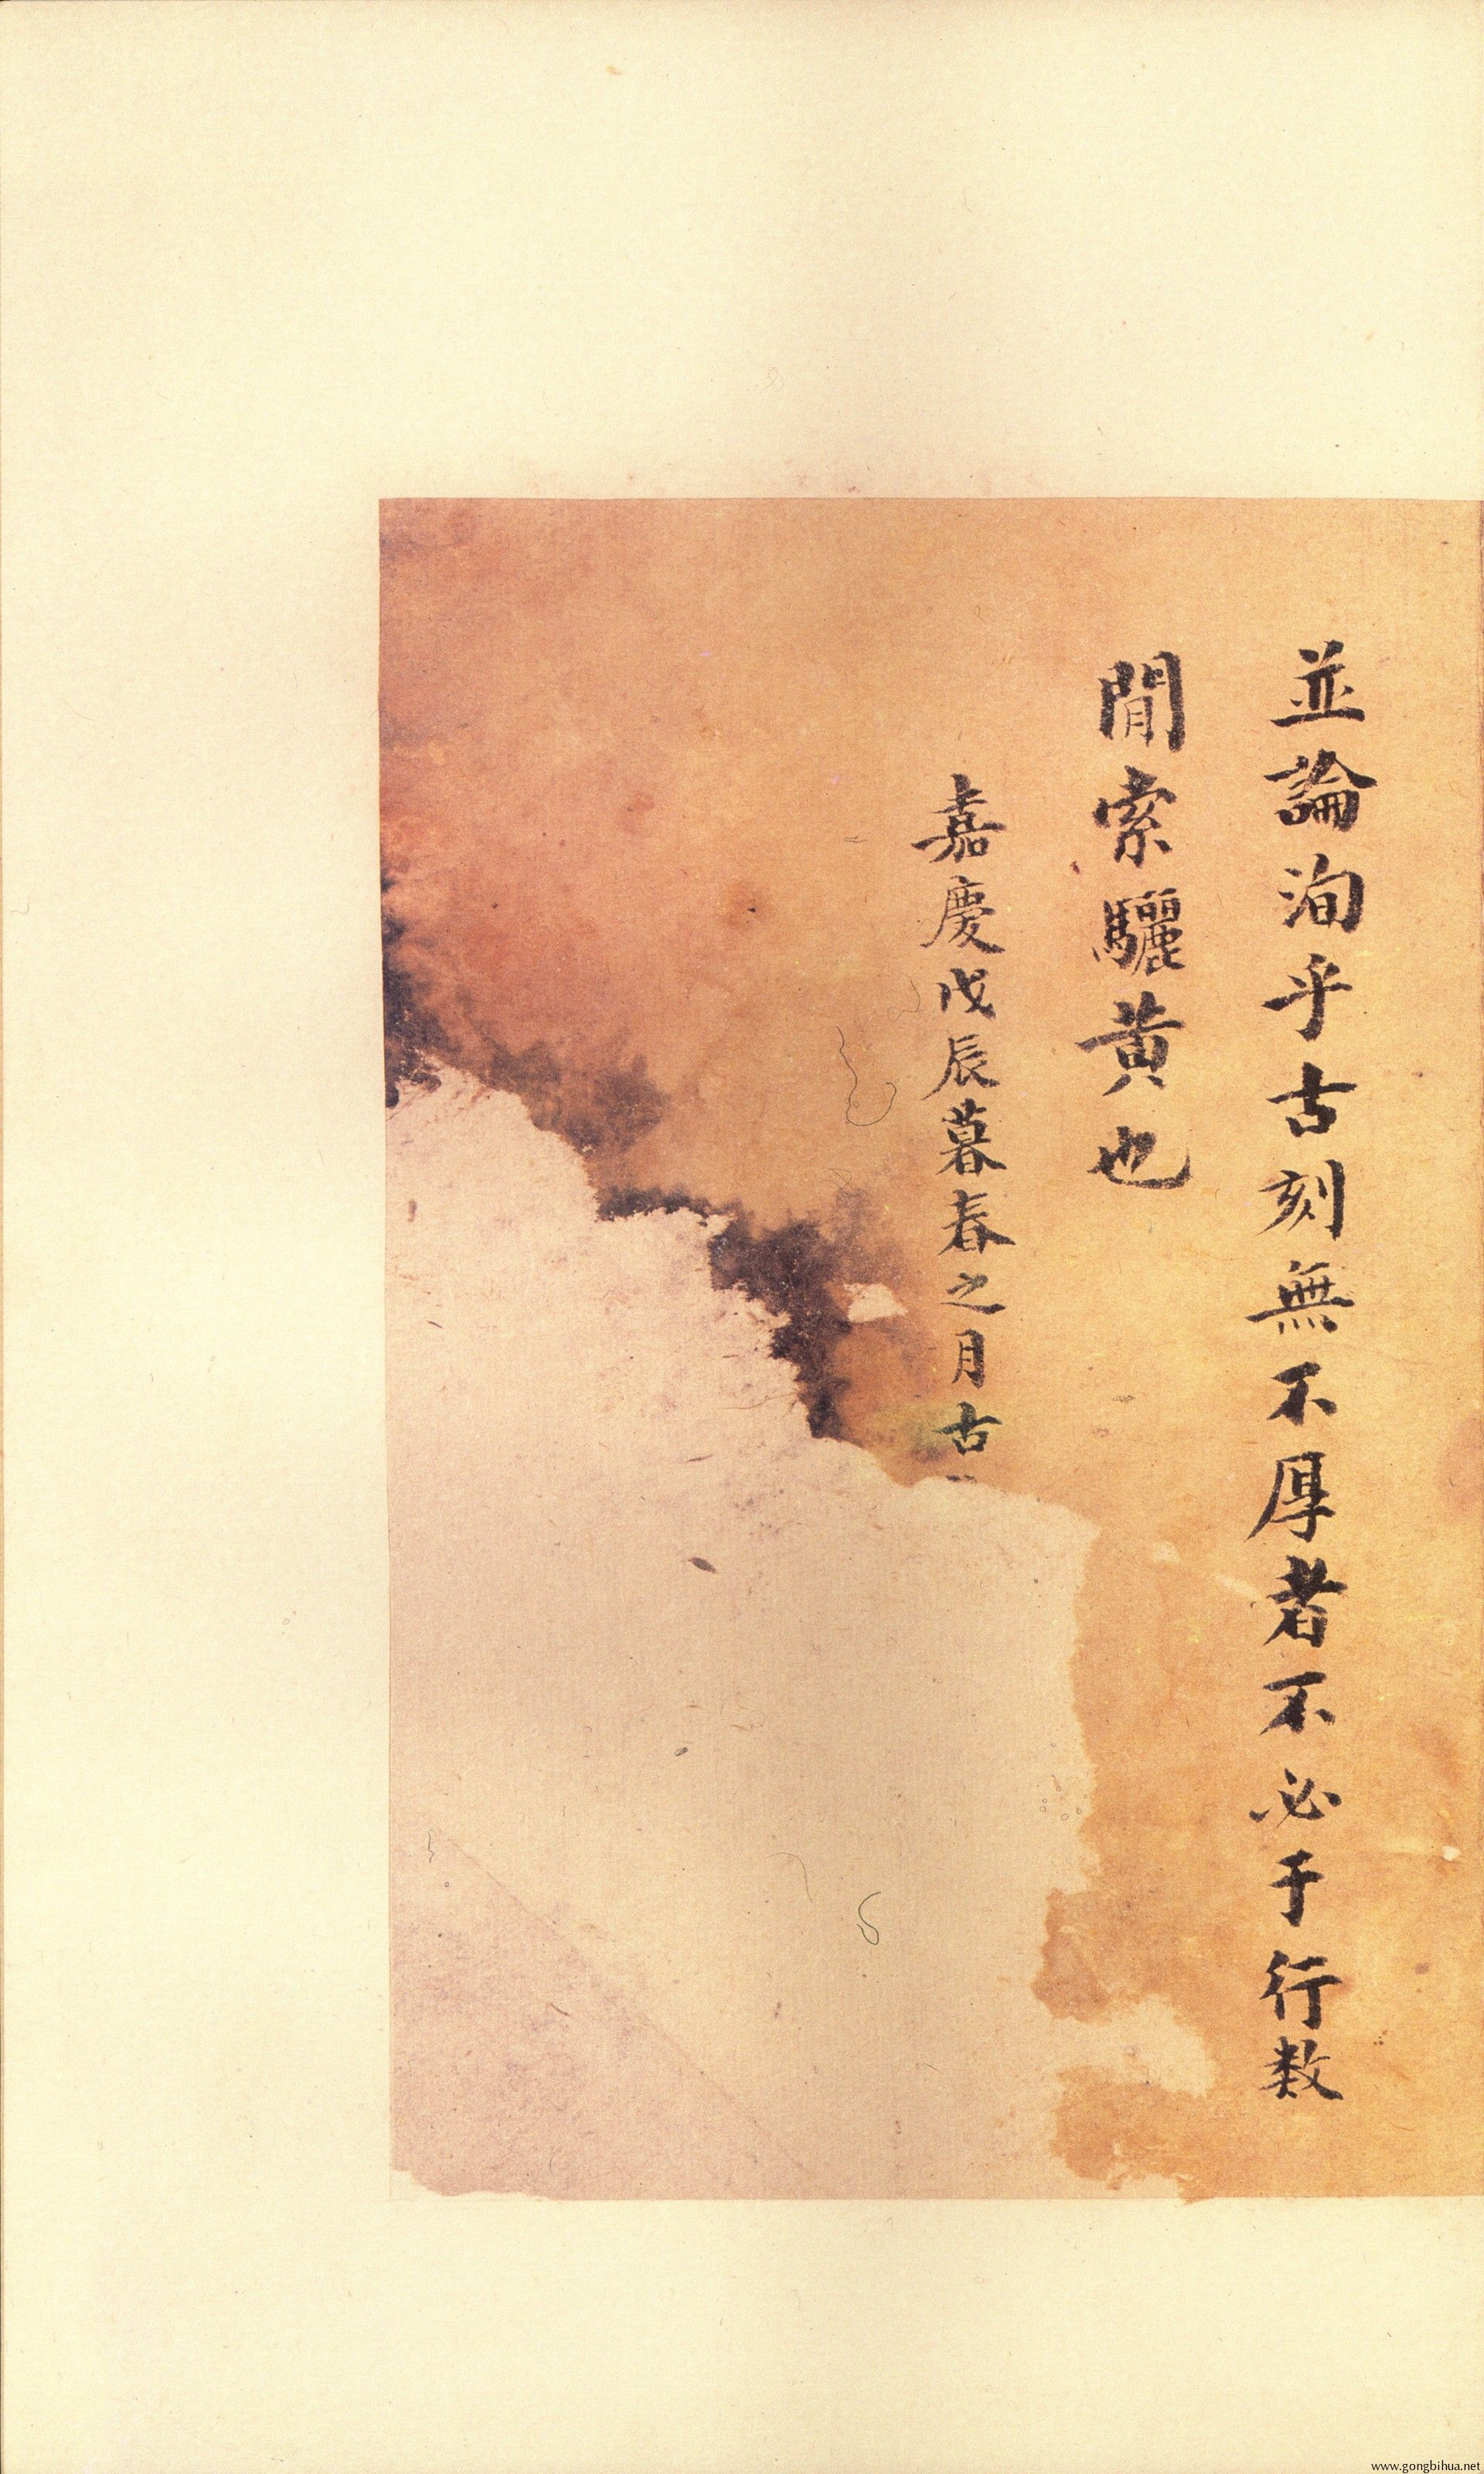 並論洵乎古刻無不厚者不必于行数
閒索驪黄也
嘉慶戊辰暮春之月古
www.gongbihua.net